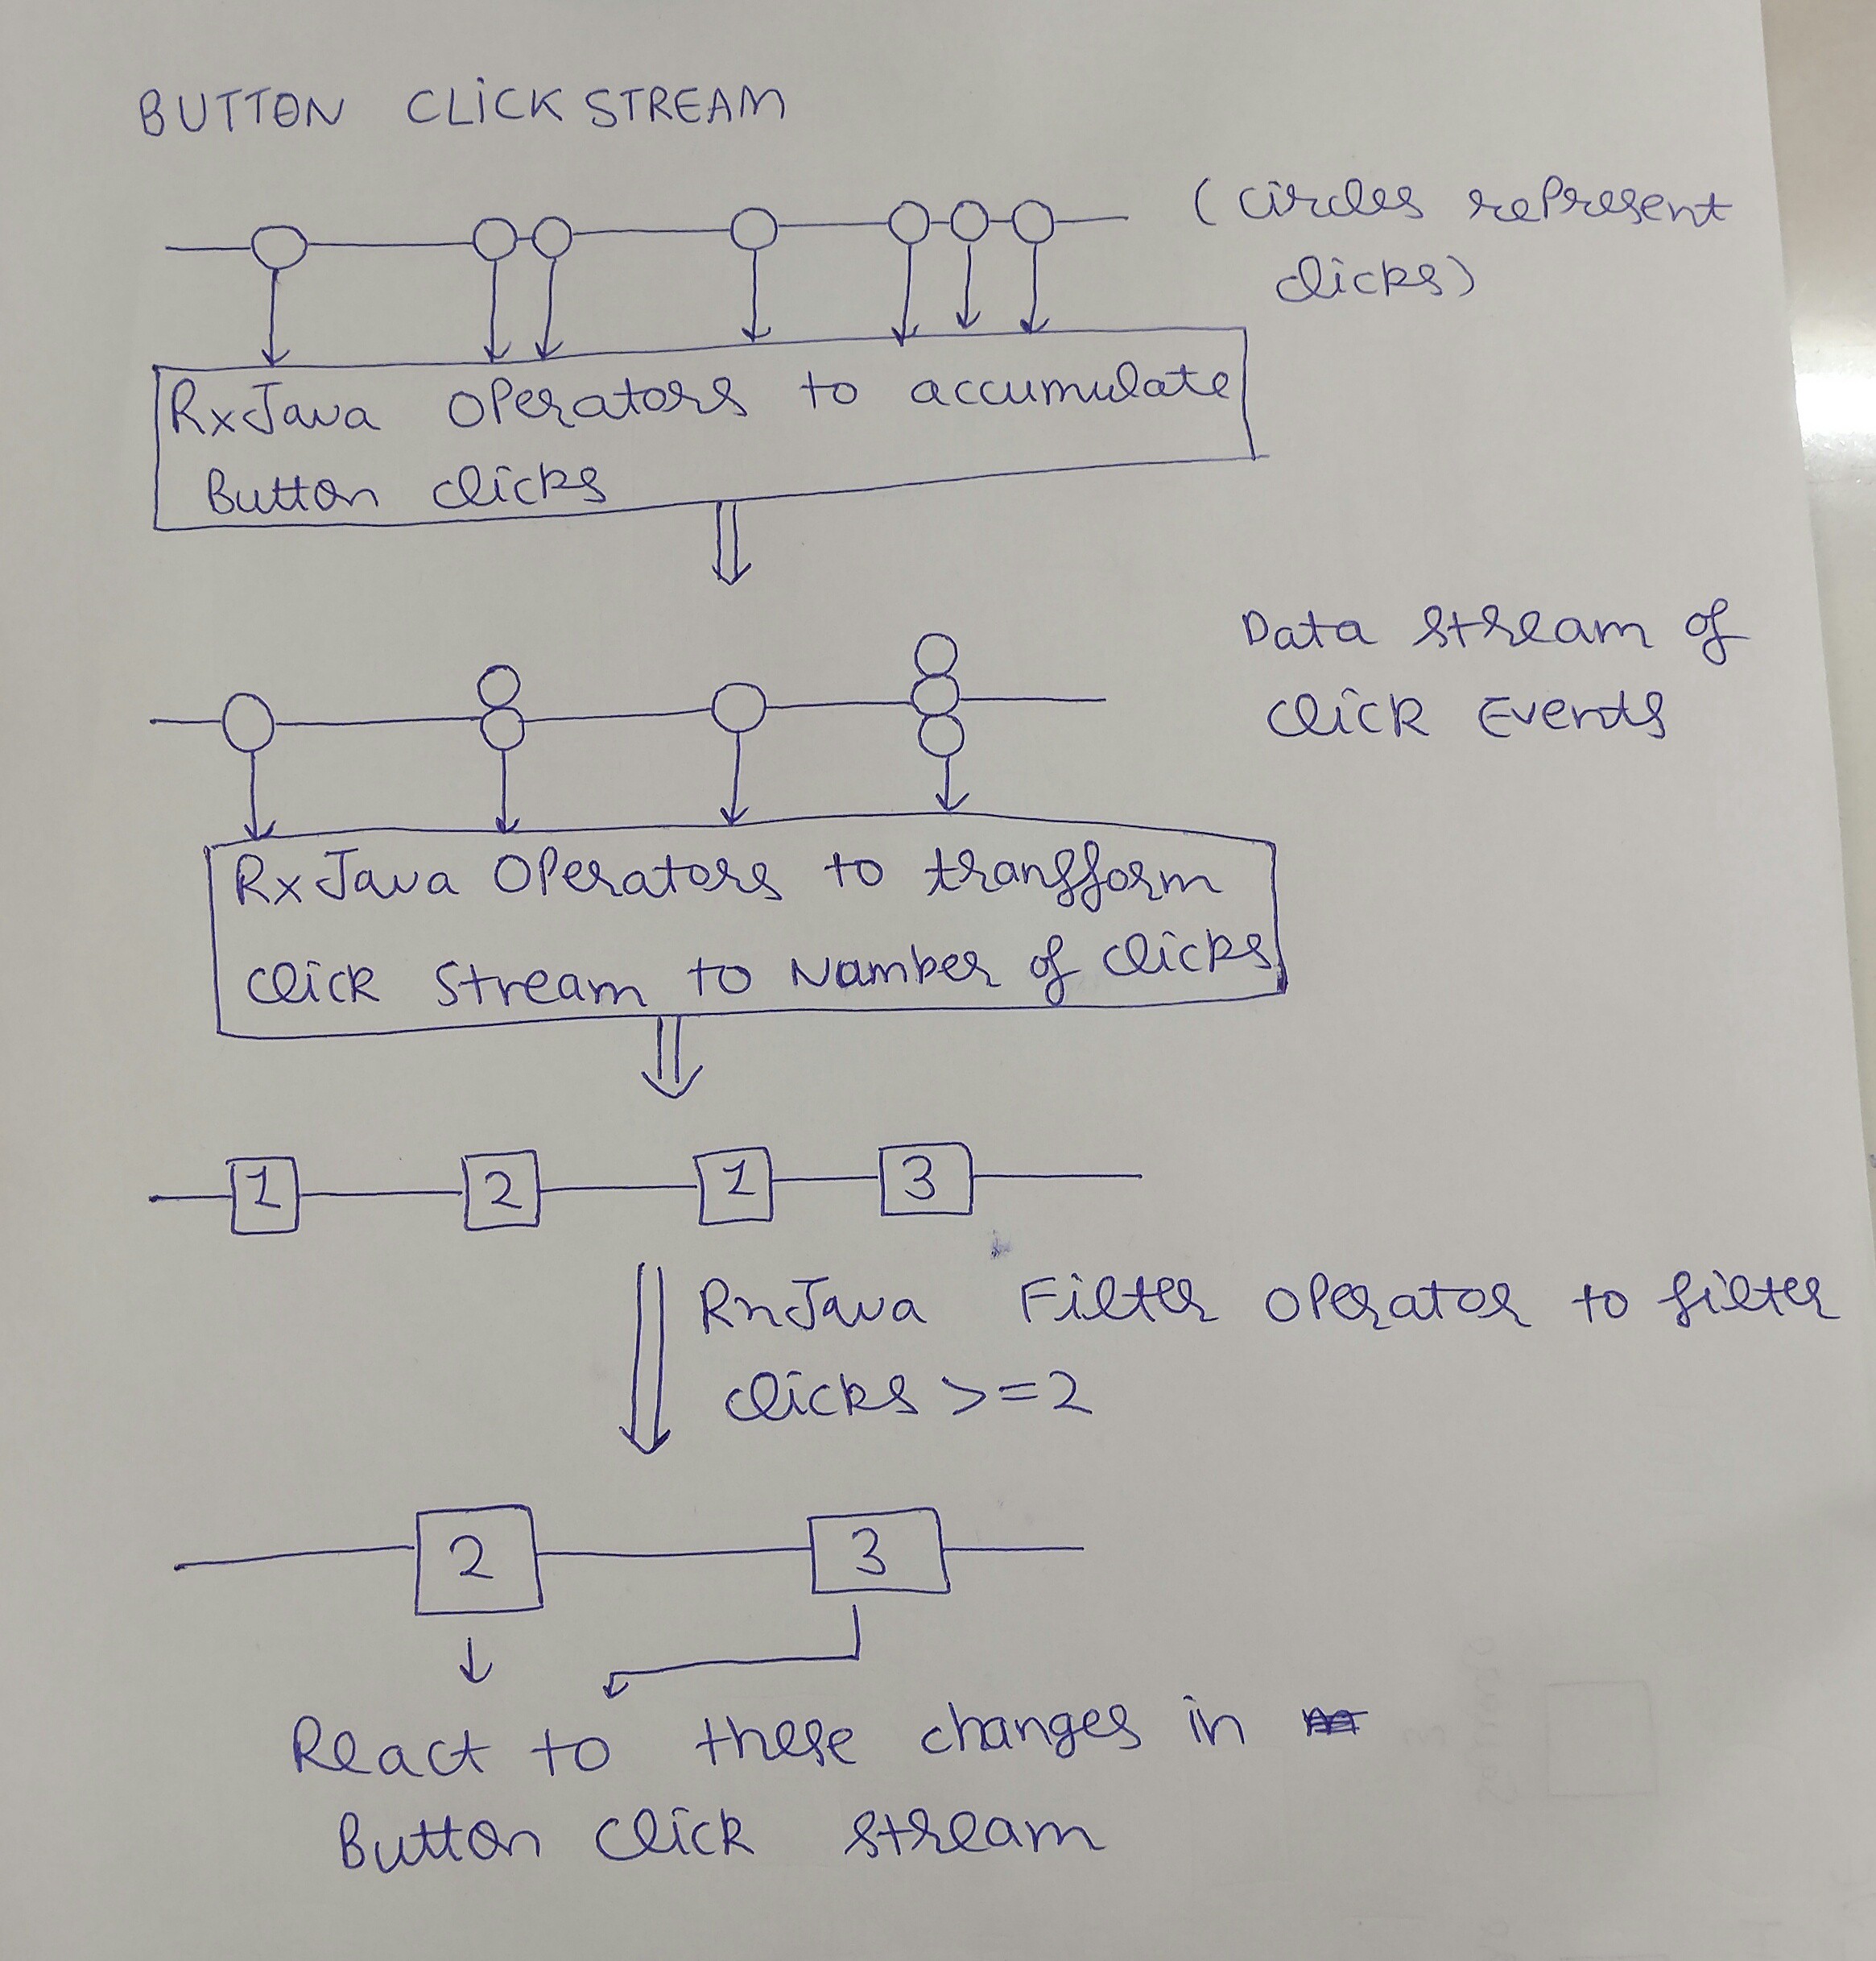 BUTTON CLICK STREAM
(circles represent
clicks)
RxJava Operators to accumulate
Button clicks
Data stream of
Click Events
RxJava Operators to transform
Click Stream to Number of clicks
1 2 1 3
RxJava Filter operator to filter
clicks >=2
2 3
React to these changes in
Button Click stream